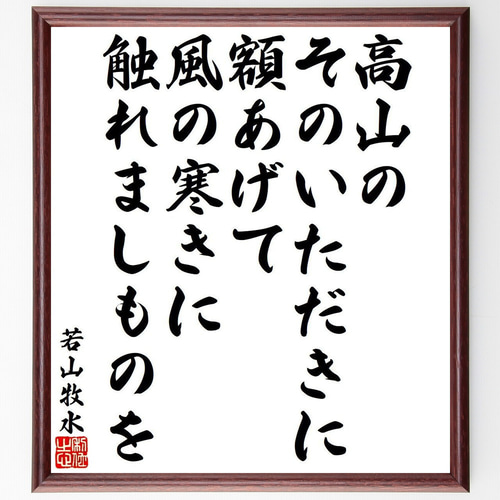 高山の
そのいただきに
額あげて
風の寒きに
触れましものを
若山牧水